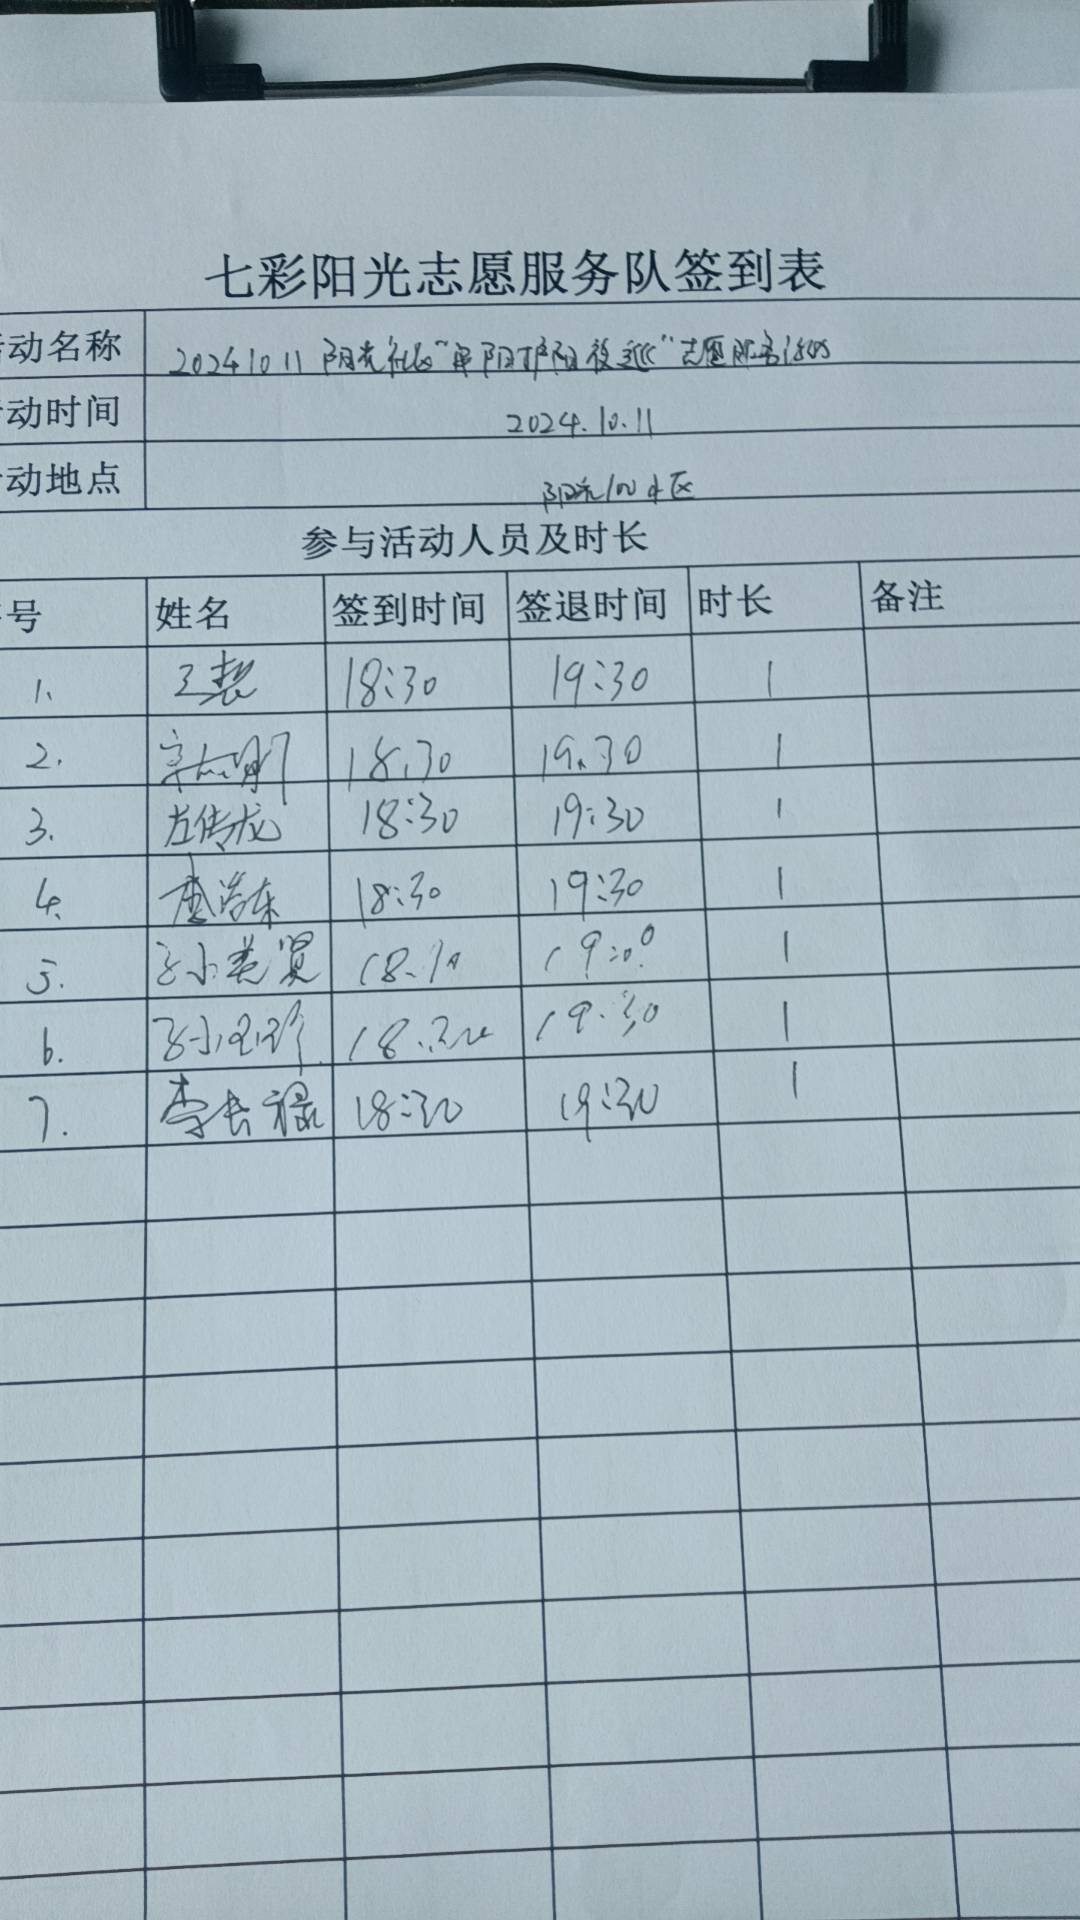 七彩阳光志愿服务队签到表
动名称 20241011 阳光社区“ 阳护阳夜巡”志愿服务活动
动时间 2024.10.11
动地点 阳光100小区
参与活动人员及时长
号 姓名 签到时间 签退时间 时长 备注
1、 18:30 19:30 1
2. 18.30 19.30 1
3、 左传龙 18:30 19:30 1
4、 唐浩东 18:30 19:30 1
5. 1
6. 19:30 1
7. 李长禄 18:30 19:30 1